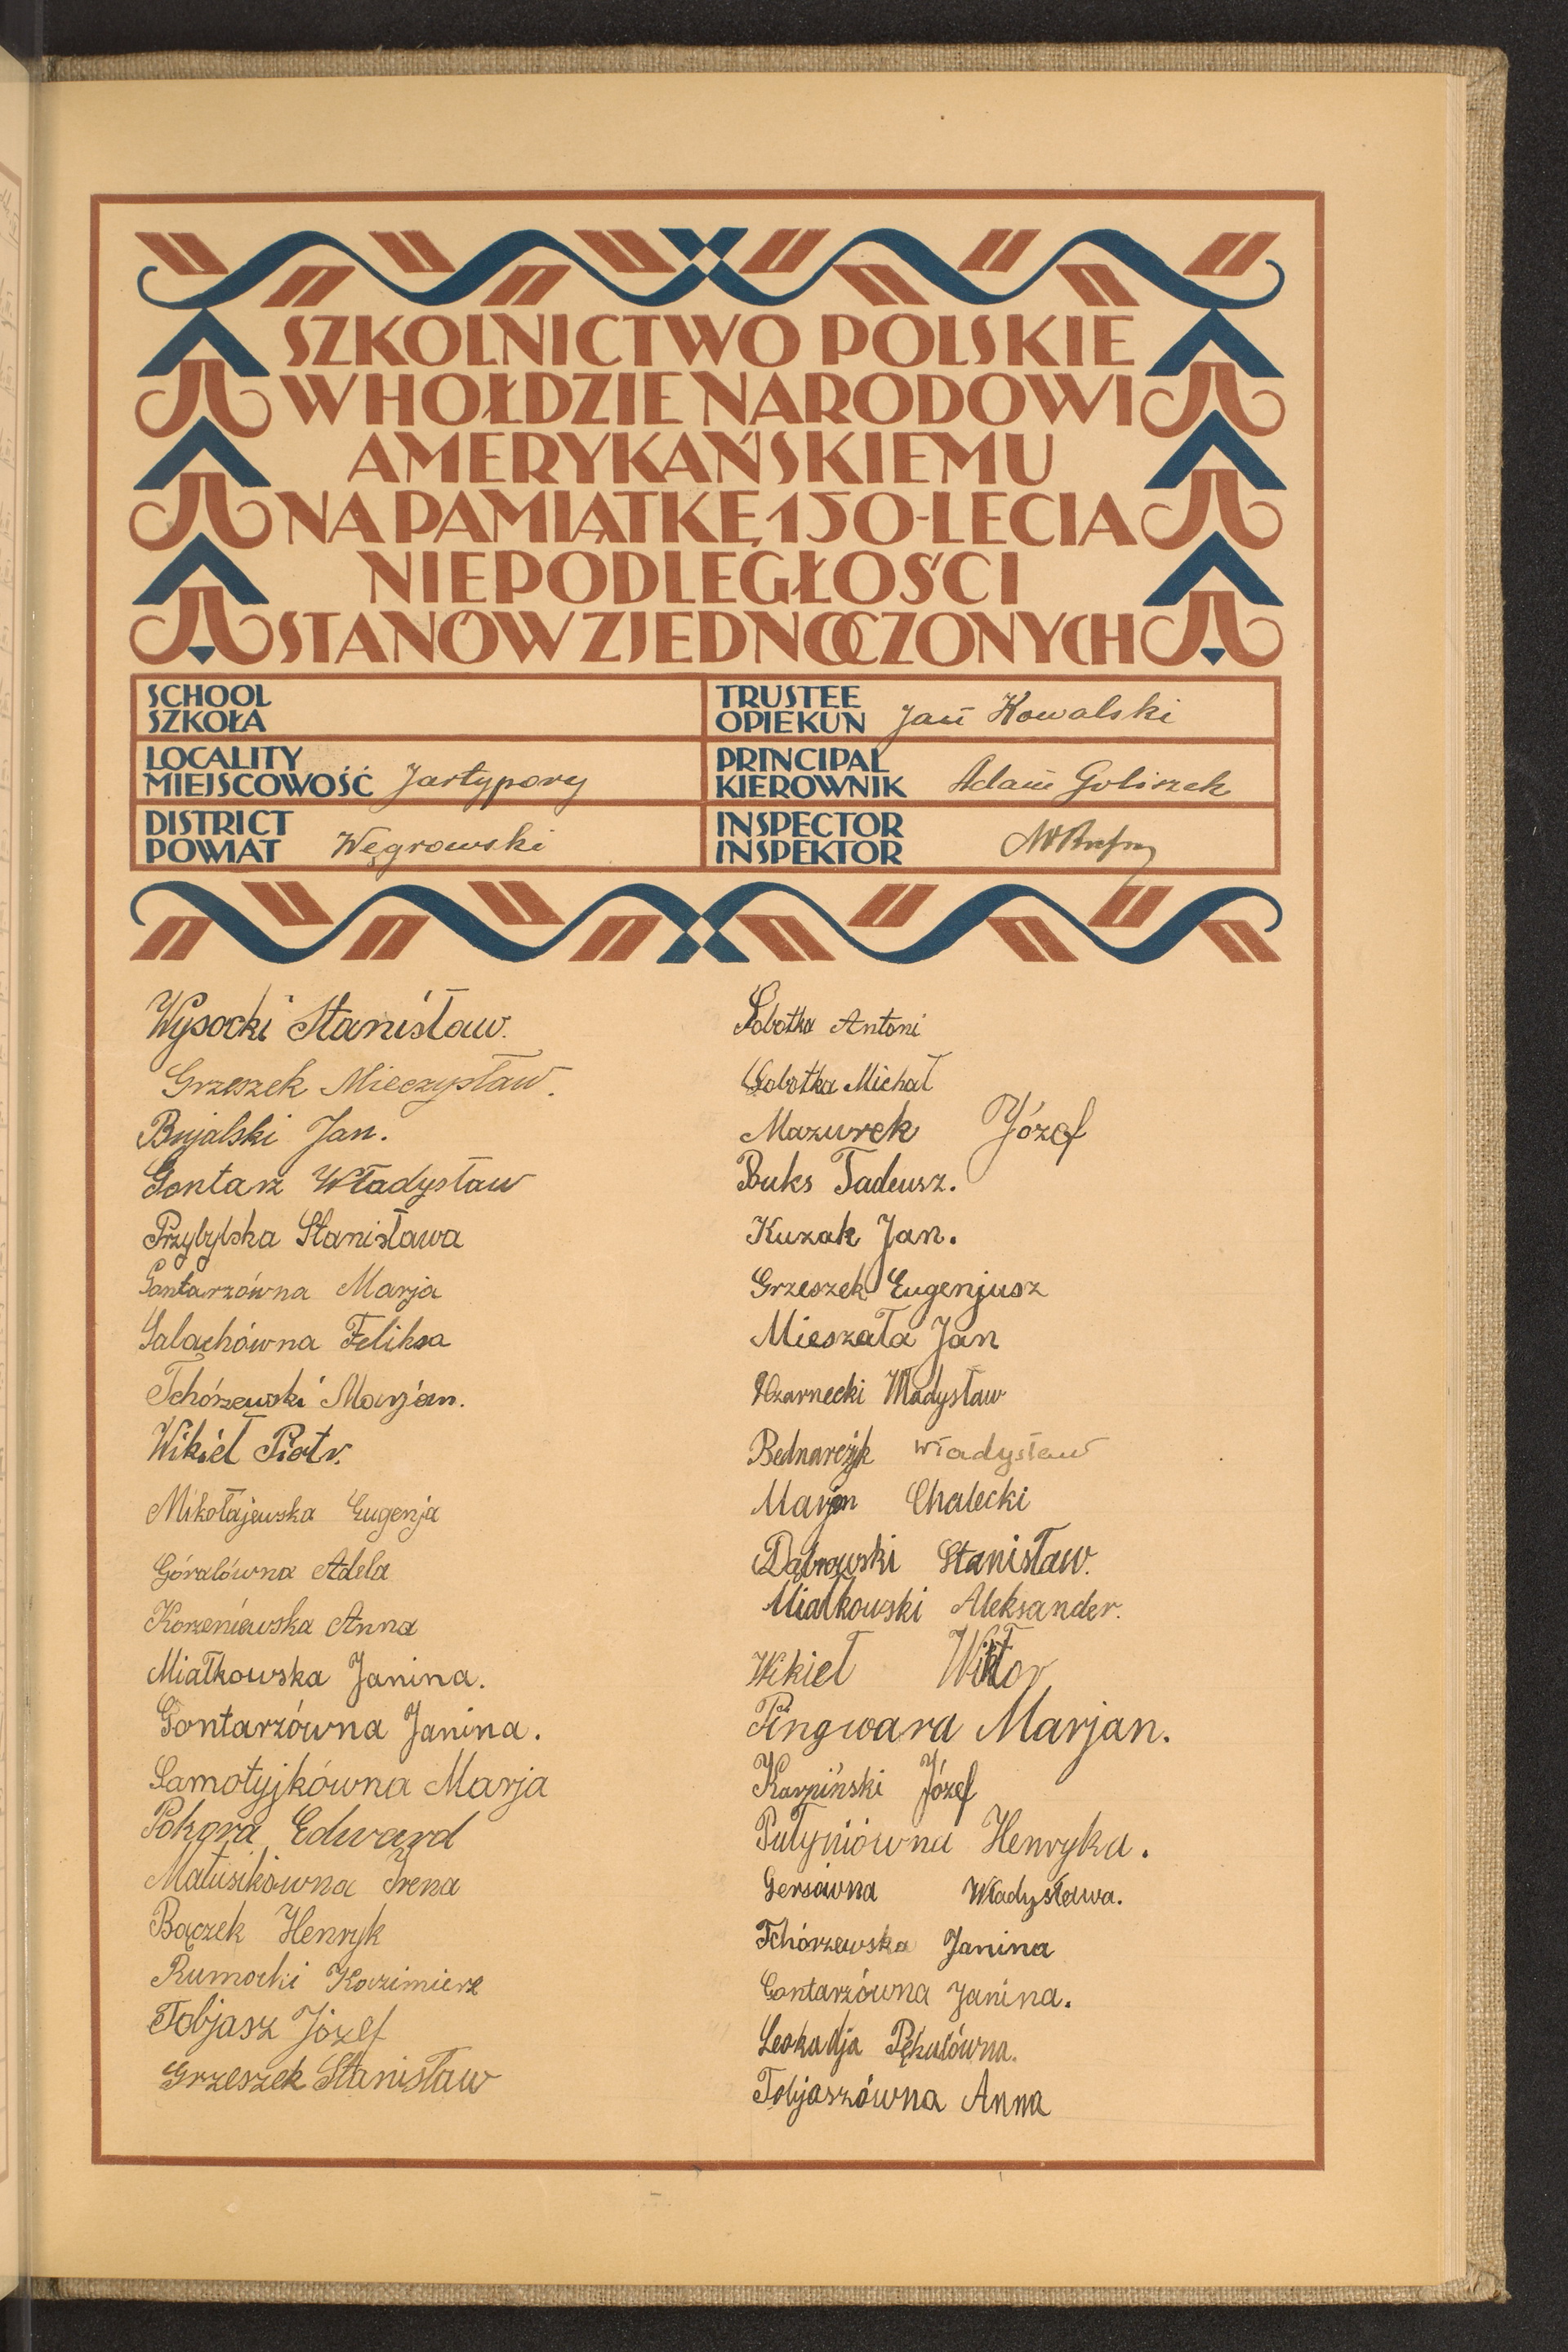 SZKOLNICTWO POLSKIE
W HOŁDZIE NARODOWI
AMERYKAŃSKIEMU
NA PAMIĄTKĘ 150-LECIA
NIEPODLEGŁOŚCI
STANÓW ZJEDNOCZONYCH
SCHOOL
SZKOŁA
LOCALITY
MIEJSCOWOŚĆ Jartypory
DISTRICT
POWIAT Węgrowski
TRUSTEE
OPIEKUN Jan Kowalski
PRINCIPAL
KIEROWNIK Adam Goliszek
INSPECTOR
INSPEKTOR
Wysocki Stanisław.
Grzeszek Mieczysław.
Bujalski Jan.
Gontarz Władysław
Przybylska Stanisława
Gontarzówna Marja
Salachówna Feliksa
Tchórzewski Marjan.
Wikieł Piotr.
Mikołajewska Eugenja
Góralówna Adela
Korzeniewska Anna
Miałkowska Janina.
Gontarzówna Janina.
Samotyjkówna Marja
Pokora Edward
Matusikówna Irena
Bączek Henryk
Rumocki Kazimierz
Tobjasz Józef
Grzeszek Stanisław
Sobotka Antoni
Sobotka Michał
Mazurek Józef
Buks Tadeusz.
Kuzak Jan.
Grzeszek Eugenjusz
Mieszała Jan
Czarnecki Władysław
Bednarczyk Władysław
Marjan Chalecki
Dąbrowski Stanisław.
Miałkowski Aleksander.
Wikieł Wiktor
Pingwara Marjan.
Karpiński Józef
Putyniówna Henryka.
Gersówna Władysława.
Tchórzewska Janina
Gontarzówna Janina.
Leokadja Pękulówna.
Tobjaszówna Anna